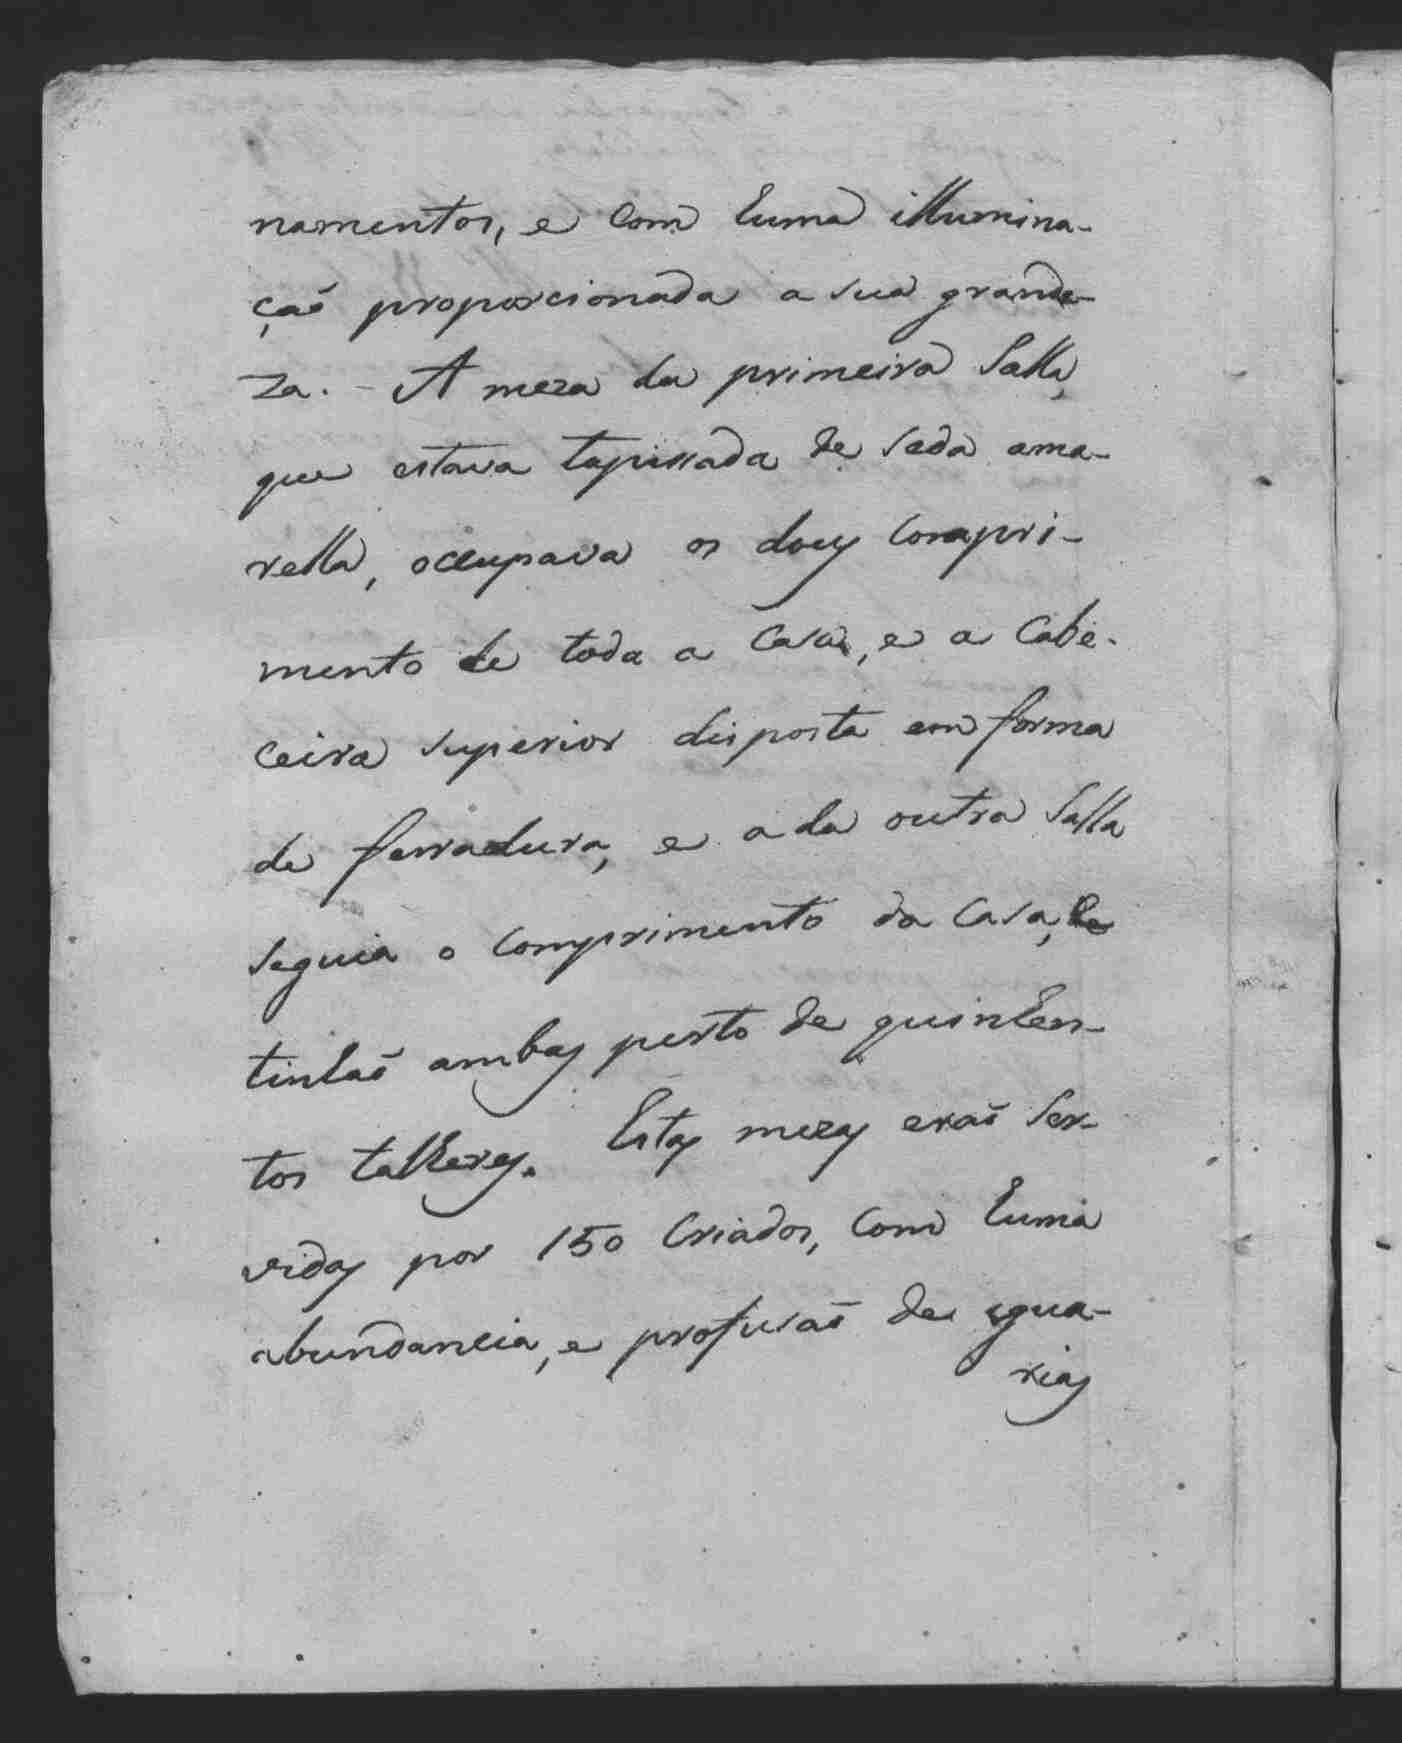 namentos, e com huma illumina-
çaõ proporcionada a sua grande-
za. - A meza da primeira Salla,
que estava tapissada de seda ama-
rella, occupava os dous compri-
mento de toda a Casa, e a Cabe-
ceira superior disposta em forma
de ferradura, e a da outra Salla
seguia o comprimento da Casa, e
tinhaõ ambas perto de quinhen-
tos talheres. Estas mezas eraõ ser-
vidas por 150 Criados, com huma
abundancia, e profusaõ de igua-
rias